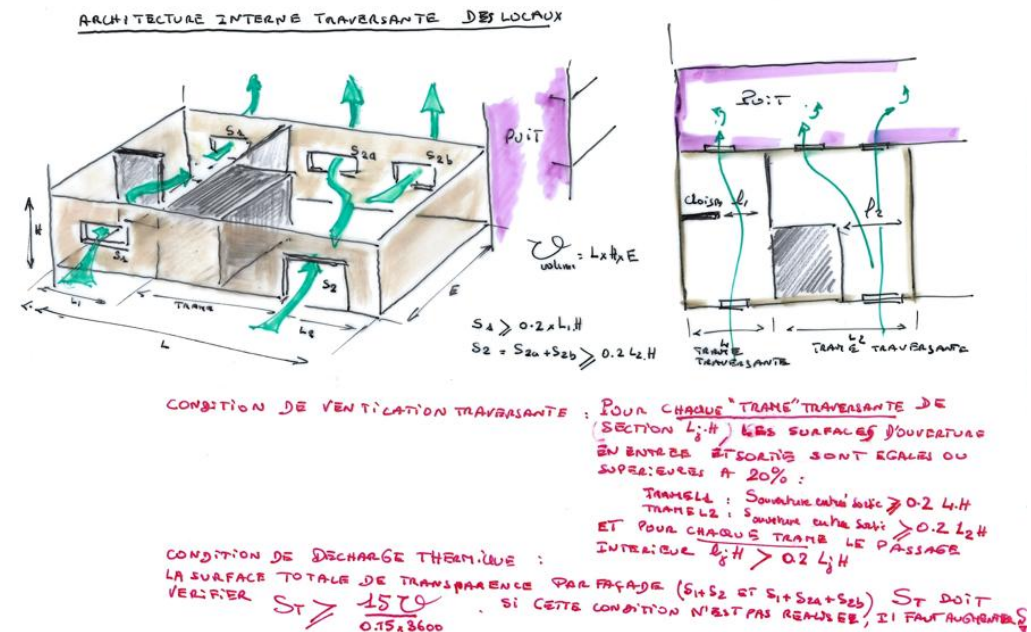 ARCHITECTURE INTERNE TRAVERSANTE DES LOCAUX
S1
S2a
S2b
S1
S2
H
L1
TRAME
L2
L
E
PUIT
V = L x H x E
volume
S1 ⩾ 0.2 x L1.H
S2 = S2a + S2b ⩾ 0.2 L2.H
PUIT
cloison l1
l2
L1
TRAME
TRAVERSANTE
L2
TRAME TRAVERSANTE
CONDITION DE VENTILATION TRAVERSANTE : POUR CHAQUE "TRAME" TRAVERSANTE DE
(SECTION Lj.H) LES SURFACES D'OUVERTURE
EN ENTREE ET SORTIE SONT EGALES OU
SUPERIEURES A 20% :
TRAME L1 : Souverture entrée sortie ⩾ 0.2 L1.H
TRAME L2 : Souverture entrée sortie ⩾ 0.2 L2H
ET POUR CHAQUE TRAME LE PASSAGE
INTERIEUR lj.H > 0.2 LjH
CONDITION DE DECHARGE THERMIQUE :
LA SURFACE TOTALE DE TRANSPARENCE PAR FAÇADE (S1+S2 ET S1+S2a+S2b) ST DOIT
VERIFIER ST ⩾ 15V / 0.75x3600 . SI CETTE CONDITION N'EST PAS REALISEE, Il FAUT AUGMENTER S